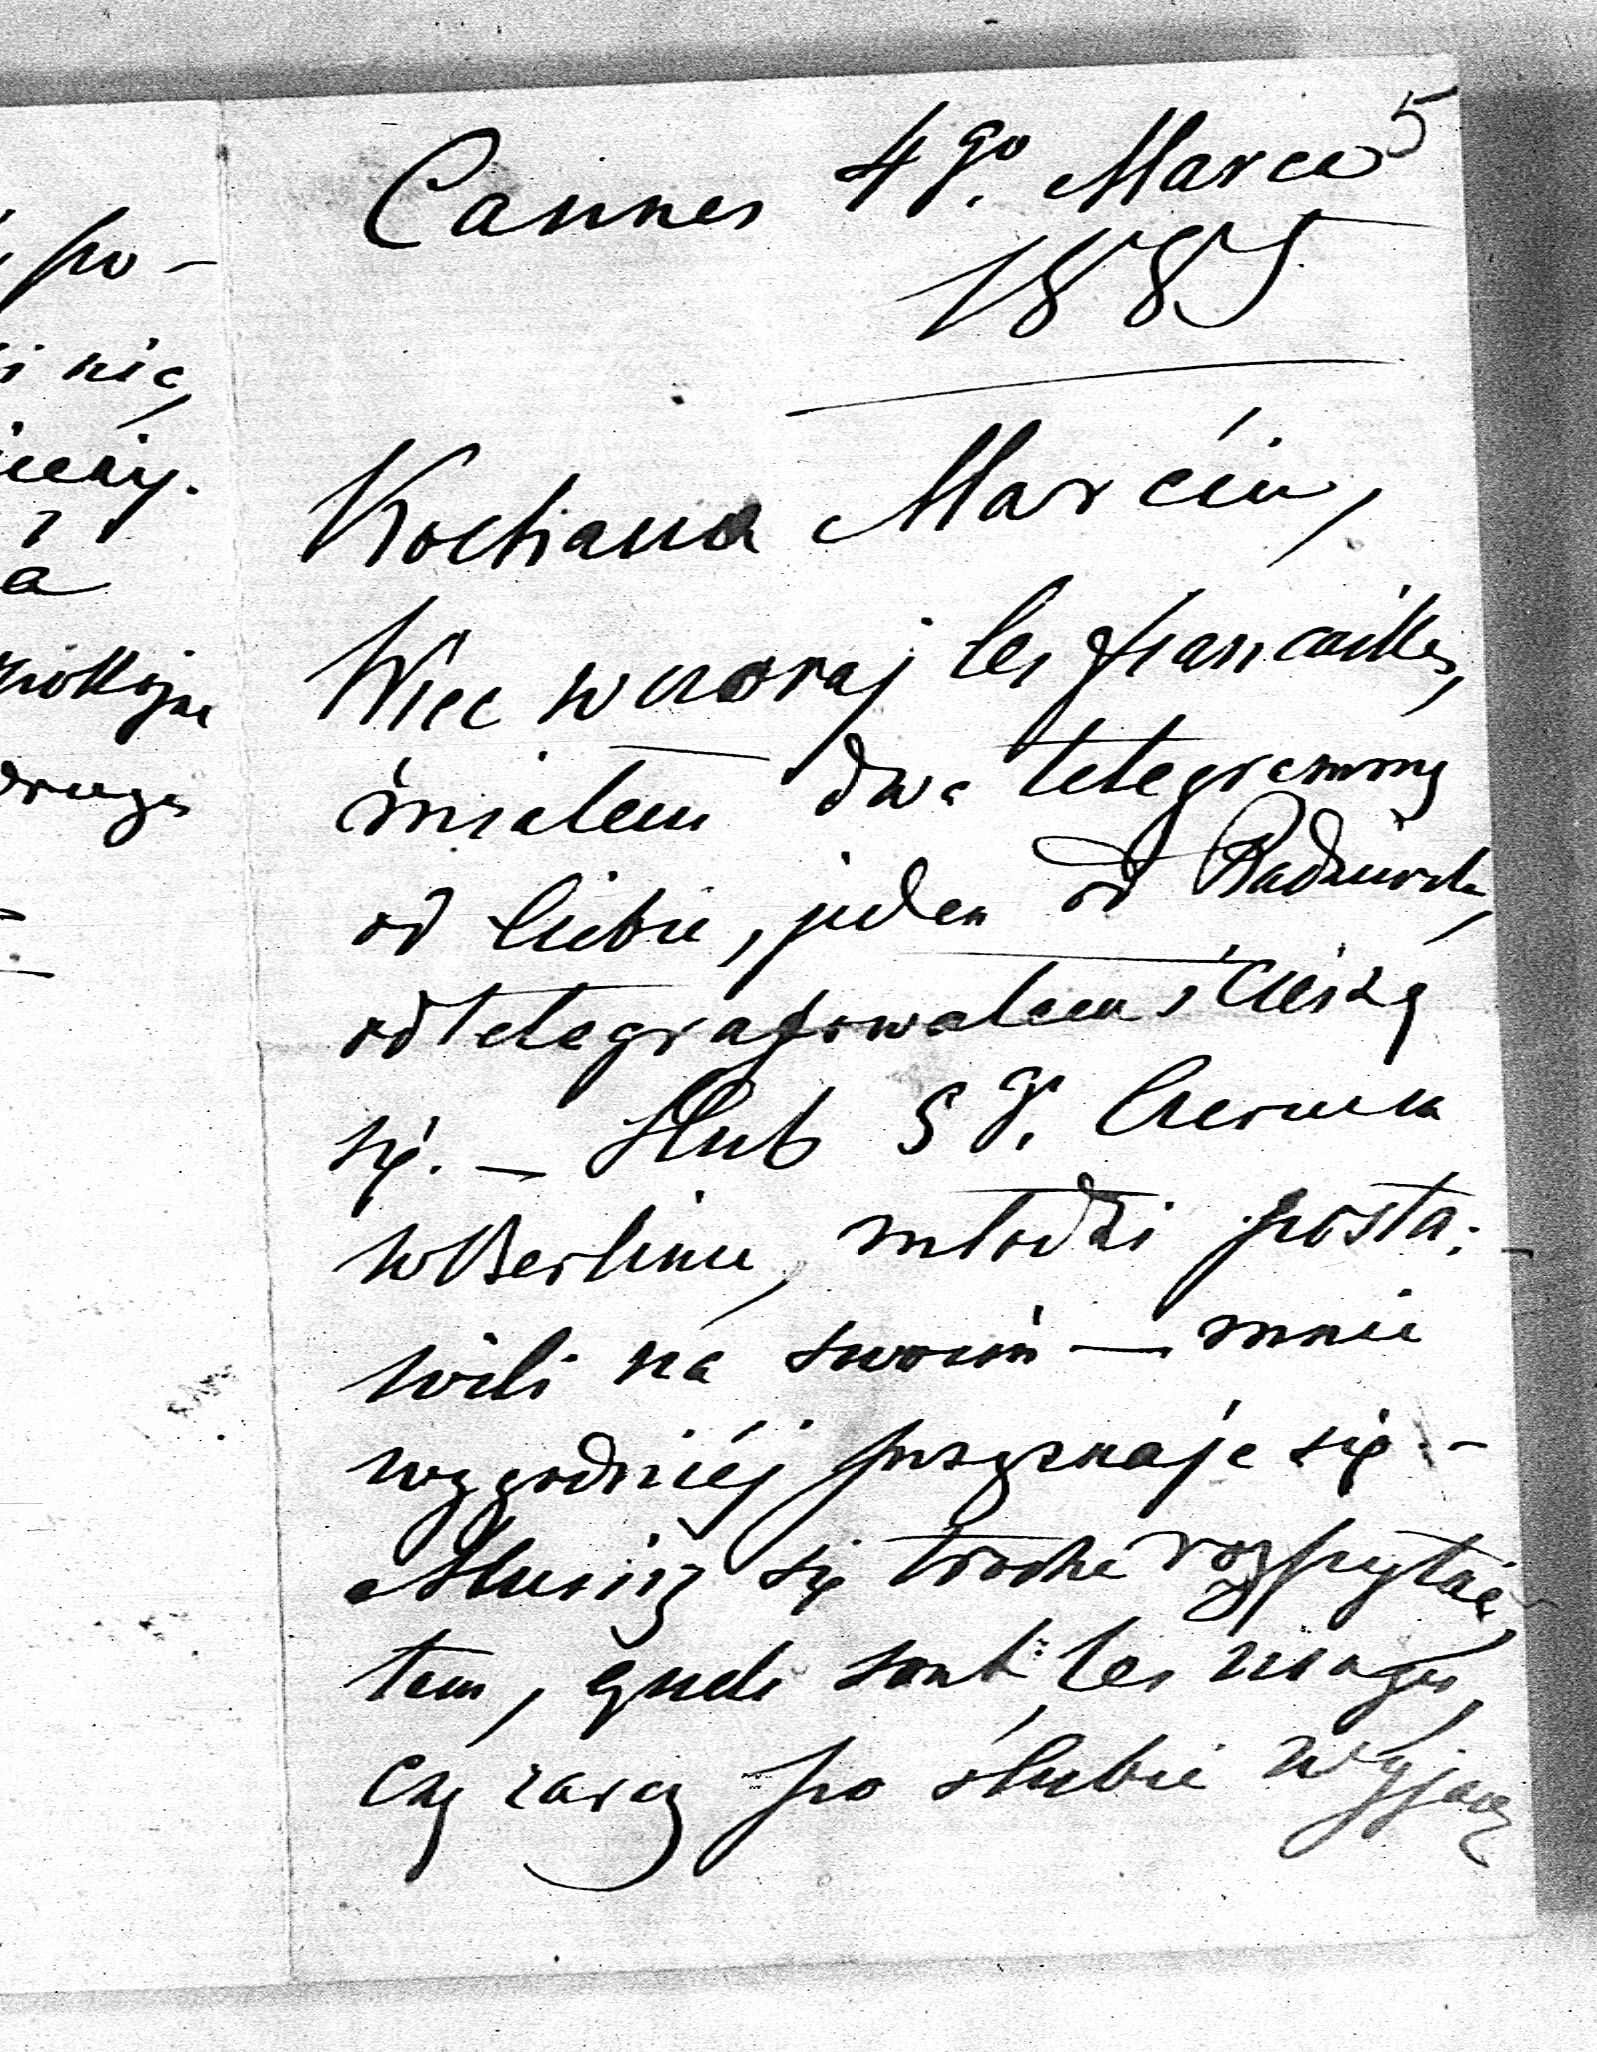 po-
nią
a
drugą
5
Cannes 4go. Marca
1885
Kochana Marciu,
Więc wczoraj les fiancailles,
miałem dwa telegrammy
od Ciebie, jeden od Radziwiłła,
odtelegrafowałem i cieszę
się. — Ślub 5go. Czerwca
w Berlinie, młodzi posta-
wili na swoim — mnie
wygodniéj przyznaję się. -
Musisz się trochę rozpytać
tam, quels sont les usages,
czy zaraz po ślubie wyjadą